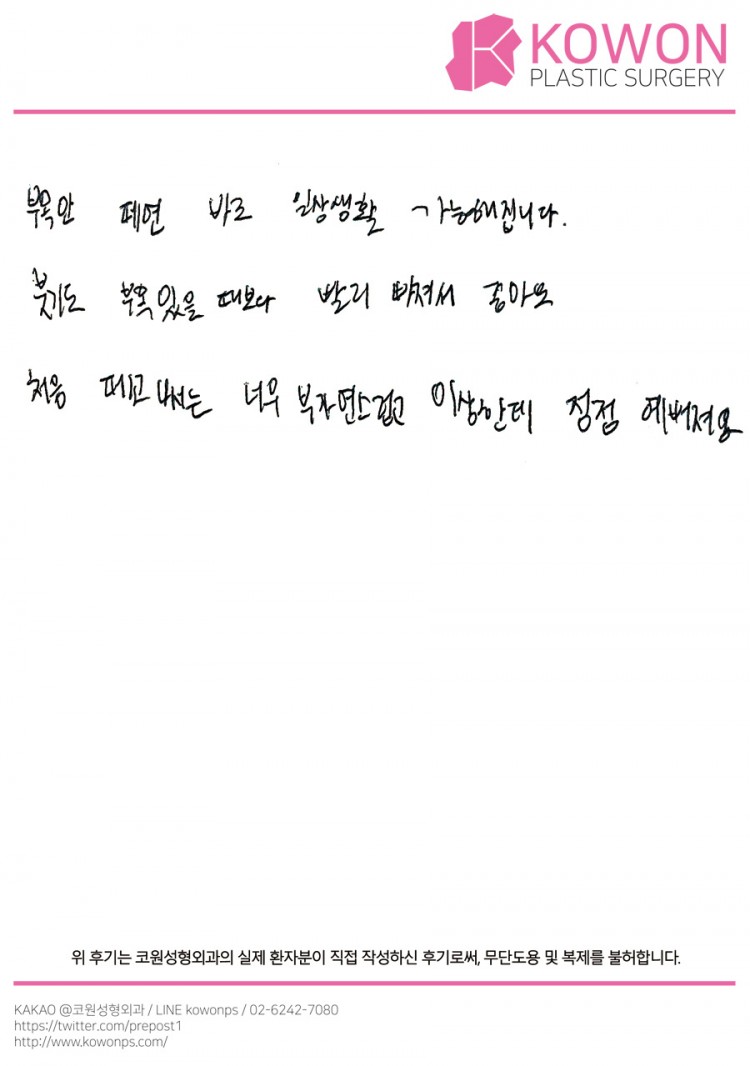 KOWON
PLASTIC SURGERY
부목만 떼면 바로 일상생활 가능해집니다.
붓기도 부목 있을 때보다 빨리 빠져서 좋아요
처음 떼고 나서는 너무 부자연스럽고 이상한데 점점 예뻐져요
위 후기는 코원성형외과의 실제 환자분이 직접 작성하신 후기로써, 무단도용 및 복제를 불허합니다.
KAKAO @코원성형외과 / LINE kowonps / 02-6242-7080
https://twitter.com/prepost1
http://www.kowonps.com/